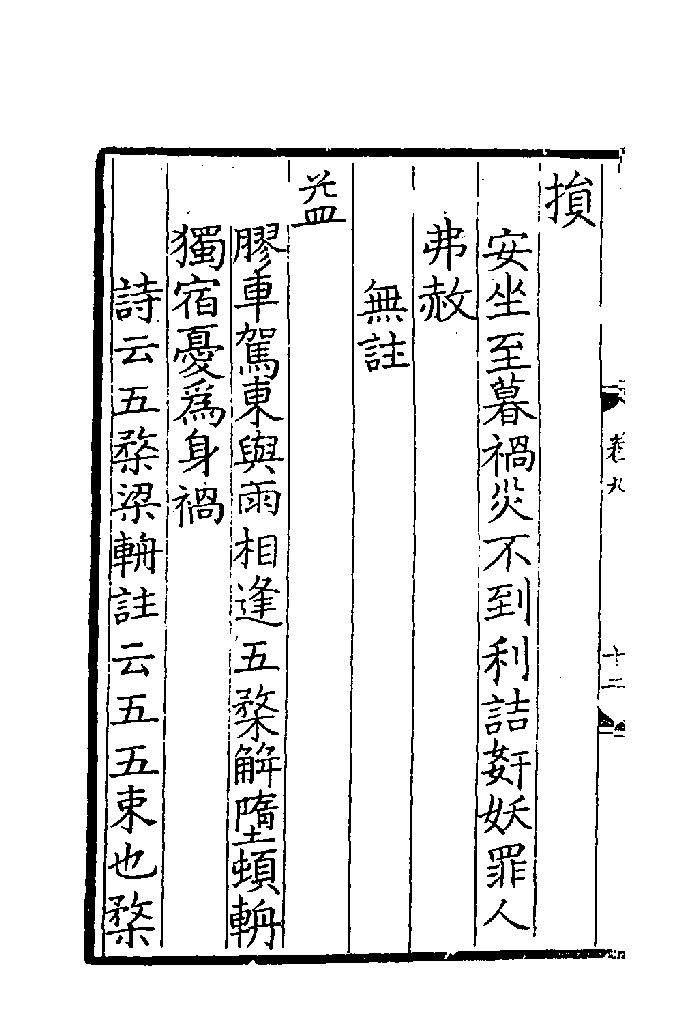 卷九
十二
損
安坐至暮禍災不到利詰姧妖罪人
弗赦
無註
益
膠車駕東與雨相逢五楘解墮頓輈
獨宿憂爲身禍
詩云五楘梁輈註云五五束也楘